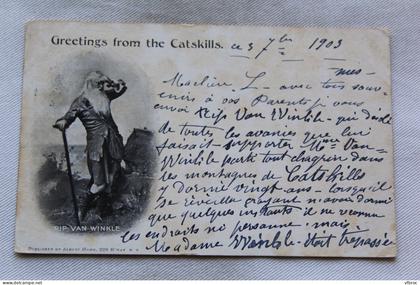 Greetings from the Catskills.
ce 3 7bre 1903
mes
Ma chère L - avec tous
souvenirs à vos Parents je vous
envoi Rip Van Winkle - qui désolé
de toutes les avanies que lui
faisait supporter Mme Van-
Winkle porta tout chagrin dans
les montagnes de Catskills
y dormit vingt-ans - lorsqu'il
se réveilla croyant n'avoir dormi
que quelques instants il ne reconnu
les endroits ni personne - mais
Madame Winkle - était trépassée
RIP VAN WINKLE
PUBLISHED BY